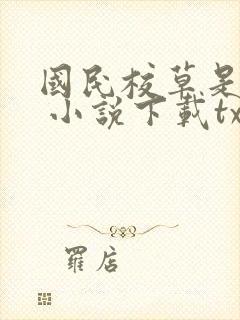 國民校草是
小說下載tx
羅店